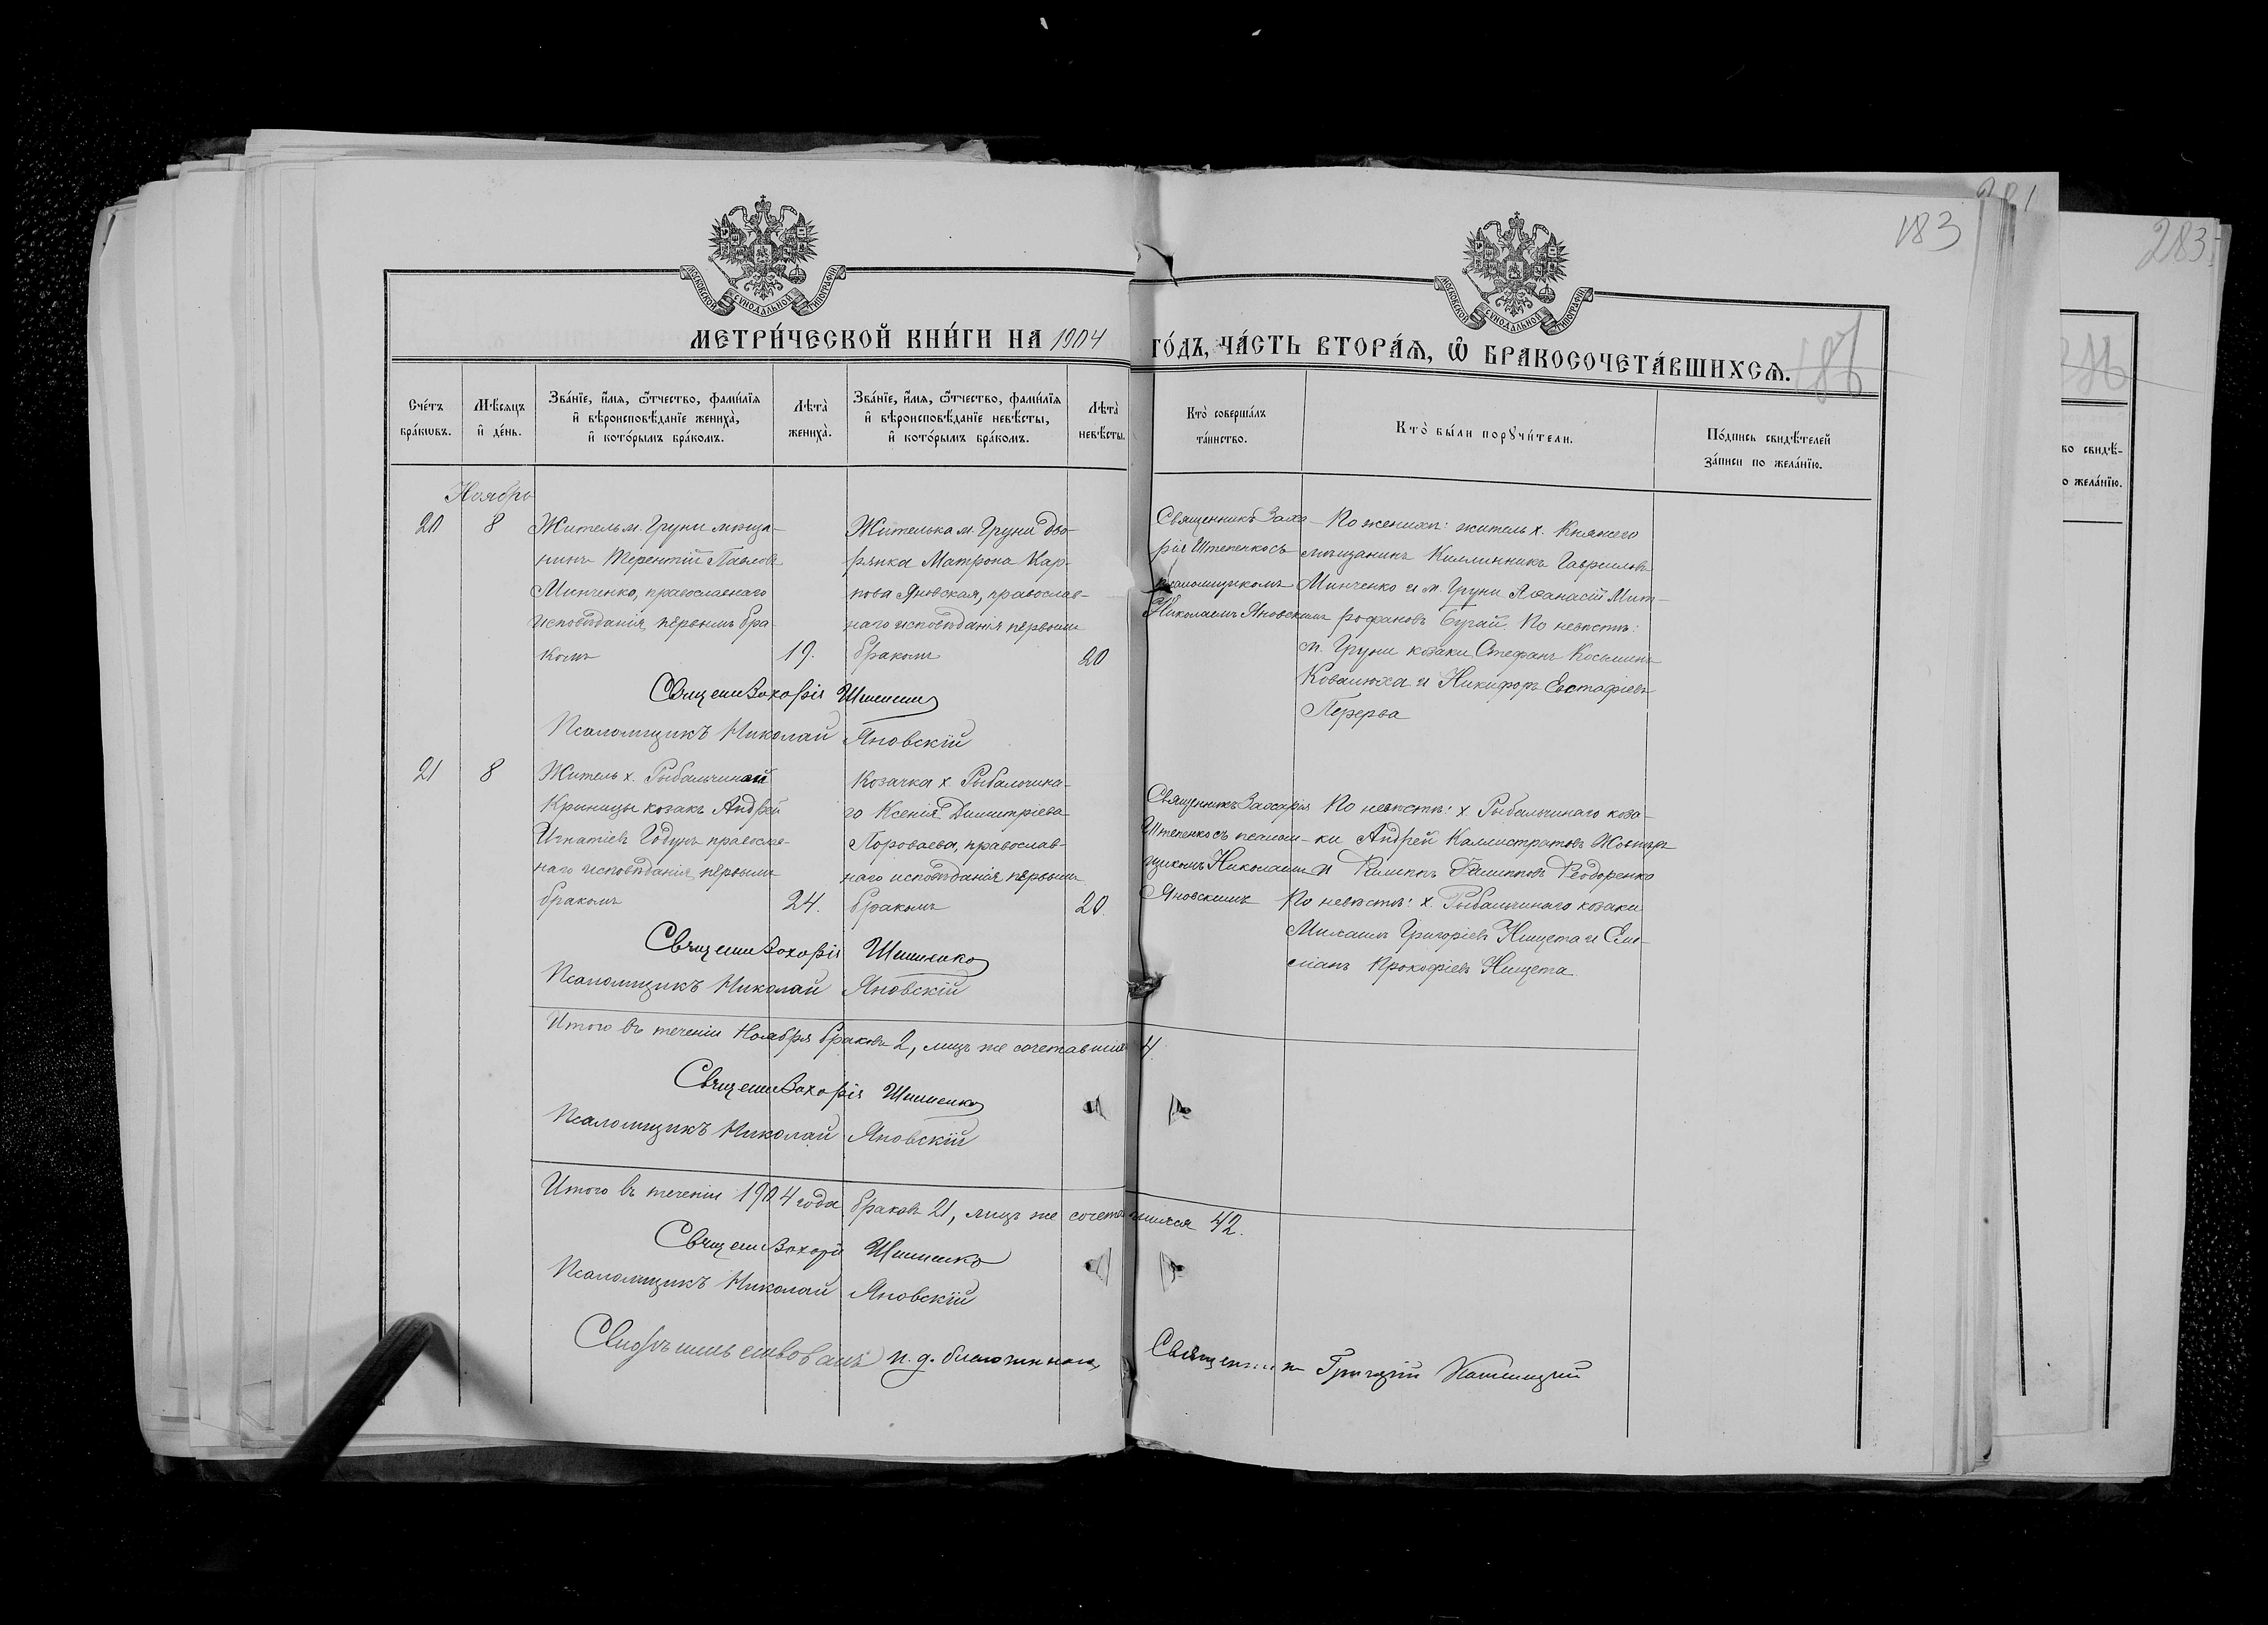 183
281
283
МОСКОВСКОЙ СѴНОДАЛЬНОЙ ТИПОГРАФІИ
МОСКОВСКОЙ СѴНОДАЛЬНОЙ ТИПОГРАФІИ
МЕТРИ́ЧЕСКОЙ КНИ́ГИ НА 1904 ГО́ДЪ, ЧА́СТЬ ВТОРА́Ѧ, Ѡ҆ БРАКОСОЧЕТА́ВШИХСѦ.
186
Сче́тъ бра́кѡвъ.
Мѣ́сѧцъ и҆ де́нь.
Зва́нїе, и҆́мѧ, ѻ҆́тчество, фами́лїѧ
и҆ вѣроисповѣ́данїе жениха̀,
и҆ кото́рымъ бра́комъ.
Лѣта̀ жениха̀.
Зва́нїе, и҆́мѧ, ѻ҆́тчество, фами́лїѧ
и҆ вѣроисповѣ́данїе невѣ́сты,
и҆ кото́рымъ бра́комъ.
Лѣта̀ невѣ́сты.
Кто̀ соверша́лъ
та́инство.
Кто̀ бы́ли порꙋчи́тели.
По́дпись свидѣ́телей
за́писи по жела́нїю.
во свидѣ́-
о жела́нїю.
Ноябрь
20
8
Житель м. Груни мѣща-
нинъ Терентій Павловъ
Минченко, православнаго
исповѣданія, первымъ бра-
комъ
19.
Жителька м. Груни дво-
рянка Матрона Кар-
пова Яновская, православ-
наго исповѣданія первымъ
бракомъ
20
Священникъ Заха-
рія Штепенко съ
псаломщикомъ
Николаемъ Яновскимъ
По женихѣ: житель х. Княжего
мѣщанинъ Гавриловъ
Минченко и м. Груни Аѳанасій Мит-
рофановъ Бугай. По невѣстѣ:
м. Груни козаки Стефанъ Косминъ
Ковалюха и Никифоръ Евстафіевъ
Перерва
Священ Захарія Штепенко
Псаломщикъ Николай Яновскій
21
8
Житель х. Рыбальчиной
Криницы козакъ Андрей
Игнатіевъ Годунъ православ-
наго исповѣданія, первымъ
бракомъ
24.
Козачка х. Рыбальчина-
го Ксенія Димитріева
Пороваева, православ-
наго исповѣданія первымъ
бракомъ
20.
Священникъ Захарія
Штепенко съ псалом-
щикомъ Николаемъ
Яновскимъ
По невѣстѣ: х. Рыбальчинаго коза-
ки Андрей Каллистратовъ
и Филиппъ Филипповъ Ѳеодоренко
По невѣстѣ: х. Рыбальчинаго козаки
Михаилъ Григоріевъ Нищета и Еми-
ліанъ Прокофіевъ Нищета.
Священ Захарія Штепенко
Псаломщикъ Николай Яновскій
Итого въ теченіи Ноября браковъ 2, лицъ же сочетавших 4.
Священ Захарія Штепенко
Псаломщикъ Николай Яновскій
Итого въ теченіи 1904 года браковъ 21, лицъ же сочетавшихся 42.
Священ Захарія Штепенко
Псаломщикъ Николай Яновскій
Свидѣтельствовалъ и. д. благочиннаго, Священникъ Григорій